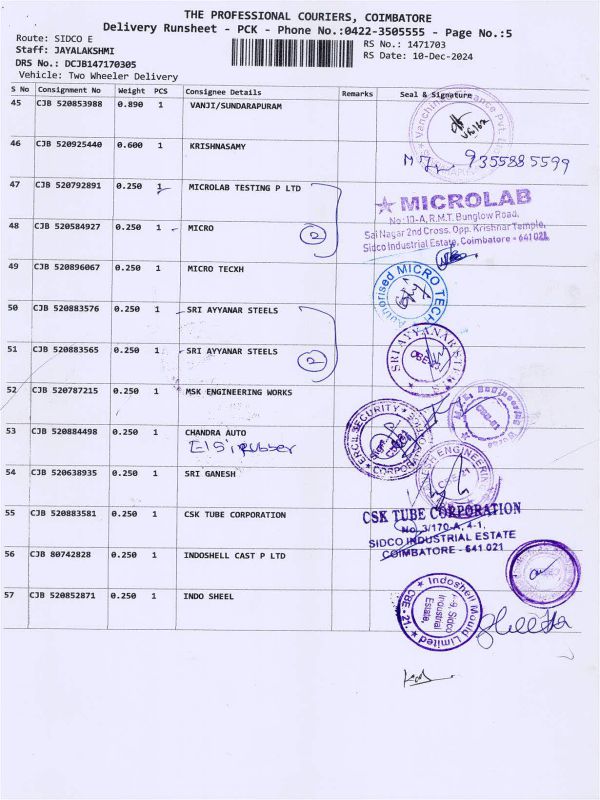 THE PROFESSIONAL COURIERS, COIMBATORE
Delivery Runsheet - PCK - Phone No.:0422-3505555 - Page No.:5
Route: SIDCO E
RS No.: 1471703
Staff: JAYALAKSHMI
RS Date: 10-Dec-2024
DRS No.: DCJB147170305
Vehicle: Two Wheeler Delivery
S No Consignment No Weight PCS Consignee Details Remarks Seal & Signature
45 CJB 520853988 0.890 1 VANJI/SUNDARAPURAM
46 CJB 520925440 0.600 1 KRISHNASAMY
9355885599
47 CJB 520792891 0.250 1 MICROLAB TESTING P LTD
★ MICROLAB
No:10-A, R.M.T. Bunglow Road,
Sai Nagar 2nd Cross, Opp. Krishnar Temple,
Sidco Industrial Estate, Coimbatore - 641 021
48 CJB 520584927 0.250 1 MICRO 2
49 CJB 520896067 0.250 1 MICRO TECXH
Authorised MICRO TECH
50 CJB 520883576 0.250 1 SRI AYYANAR STEELS
51 CJB 520883565 0.250 1 SRI AYYANAR STEELS 2
SRI AYYANAR STEELS
52 CJB 520787215 0.250 1 MSK ENGINEERING WORKS
53 CJB 520884498 0.250 1 CHANDRA AUTO
SECURITY
CORPORATION
54 CJB 520638935 0.250 1 SRI GANESH
ENGINEERING
55 CJB 520883581 0.250 1 CSK TUBE CORPORATION
CSK TUBE CORPORATION
No. 3/170-A, 4-1,
SIDCO INDUSTRIAL ESTATE
COIMBATORE - 641 021
56 CJB 80742828 0.250 1 INDOSHELL CAST P LTD
57 CJB 520852871 0.250 1 INDO SHEEL
★ Indoshell Mould Limited ★ CBE - 21.
Sidco
Industrial
Estate,